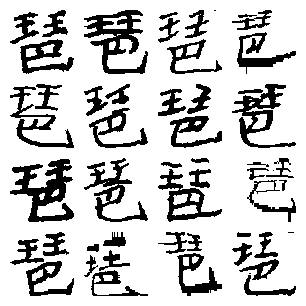 琶琶琶琶
琶琶琶琶
琶琶琶琶
琶琶琶琶